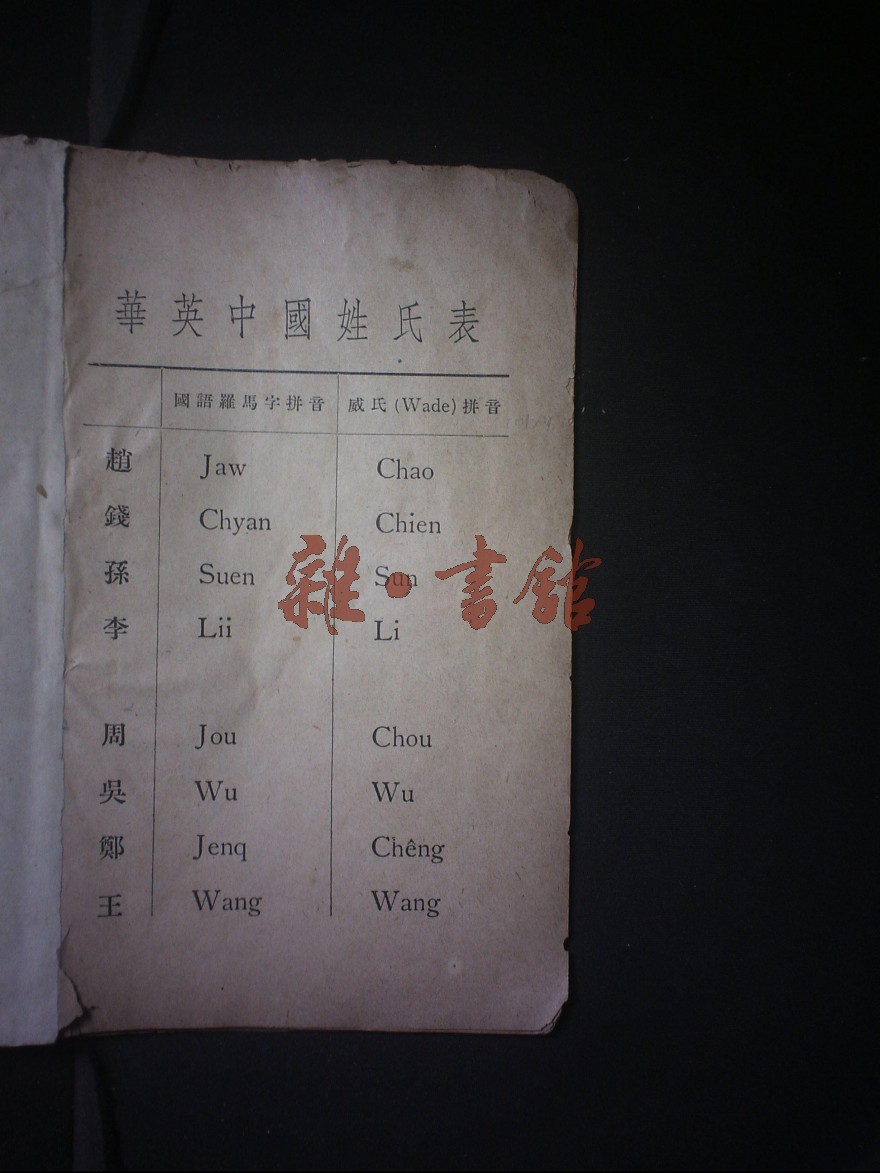 華英中國姓氏表
國語羅馬字拼音 威氏(Wade)拼音
趙 Jaw Chao
錢 Chyan Chien
孫 Suen Sun
李 Lii Li
雜·書館
周 Jou Chou
吳 Wu Wu
鄭 Jenq Chêng
王 Wang Wang